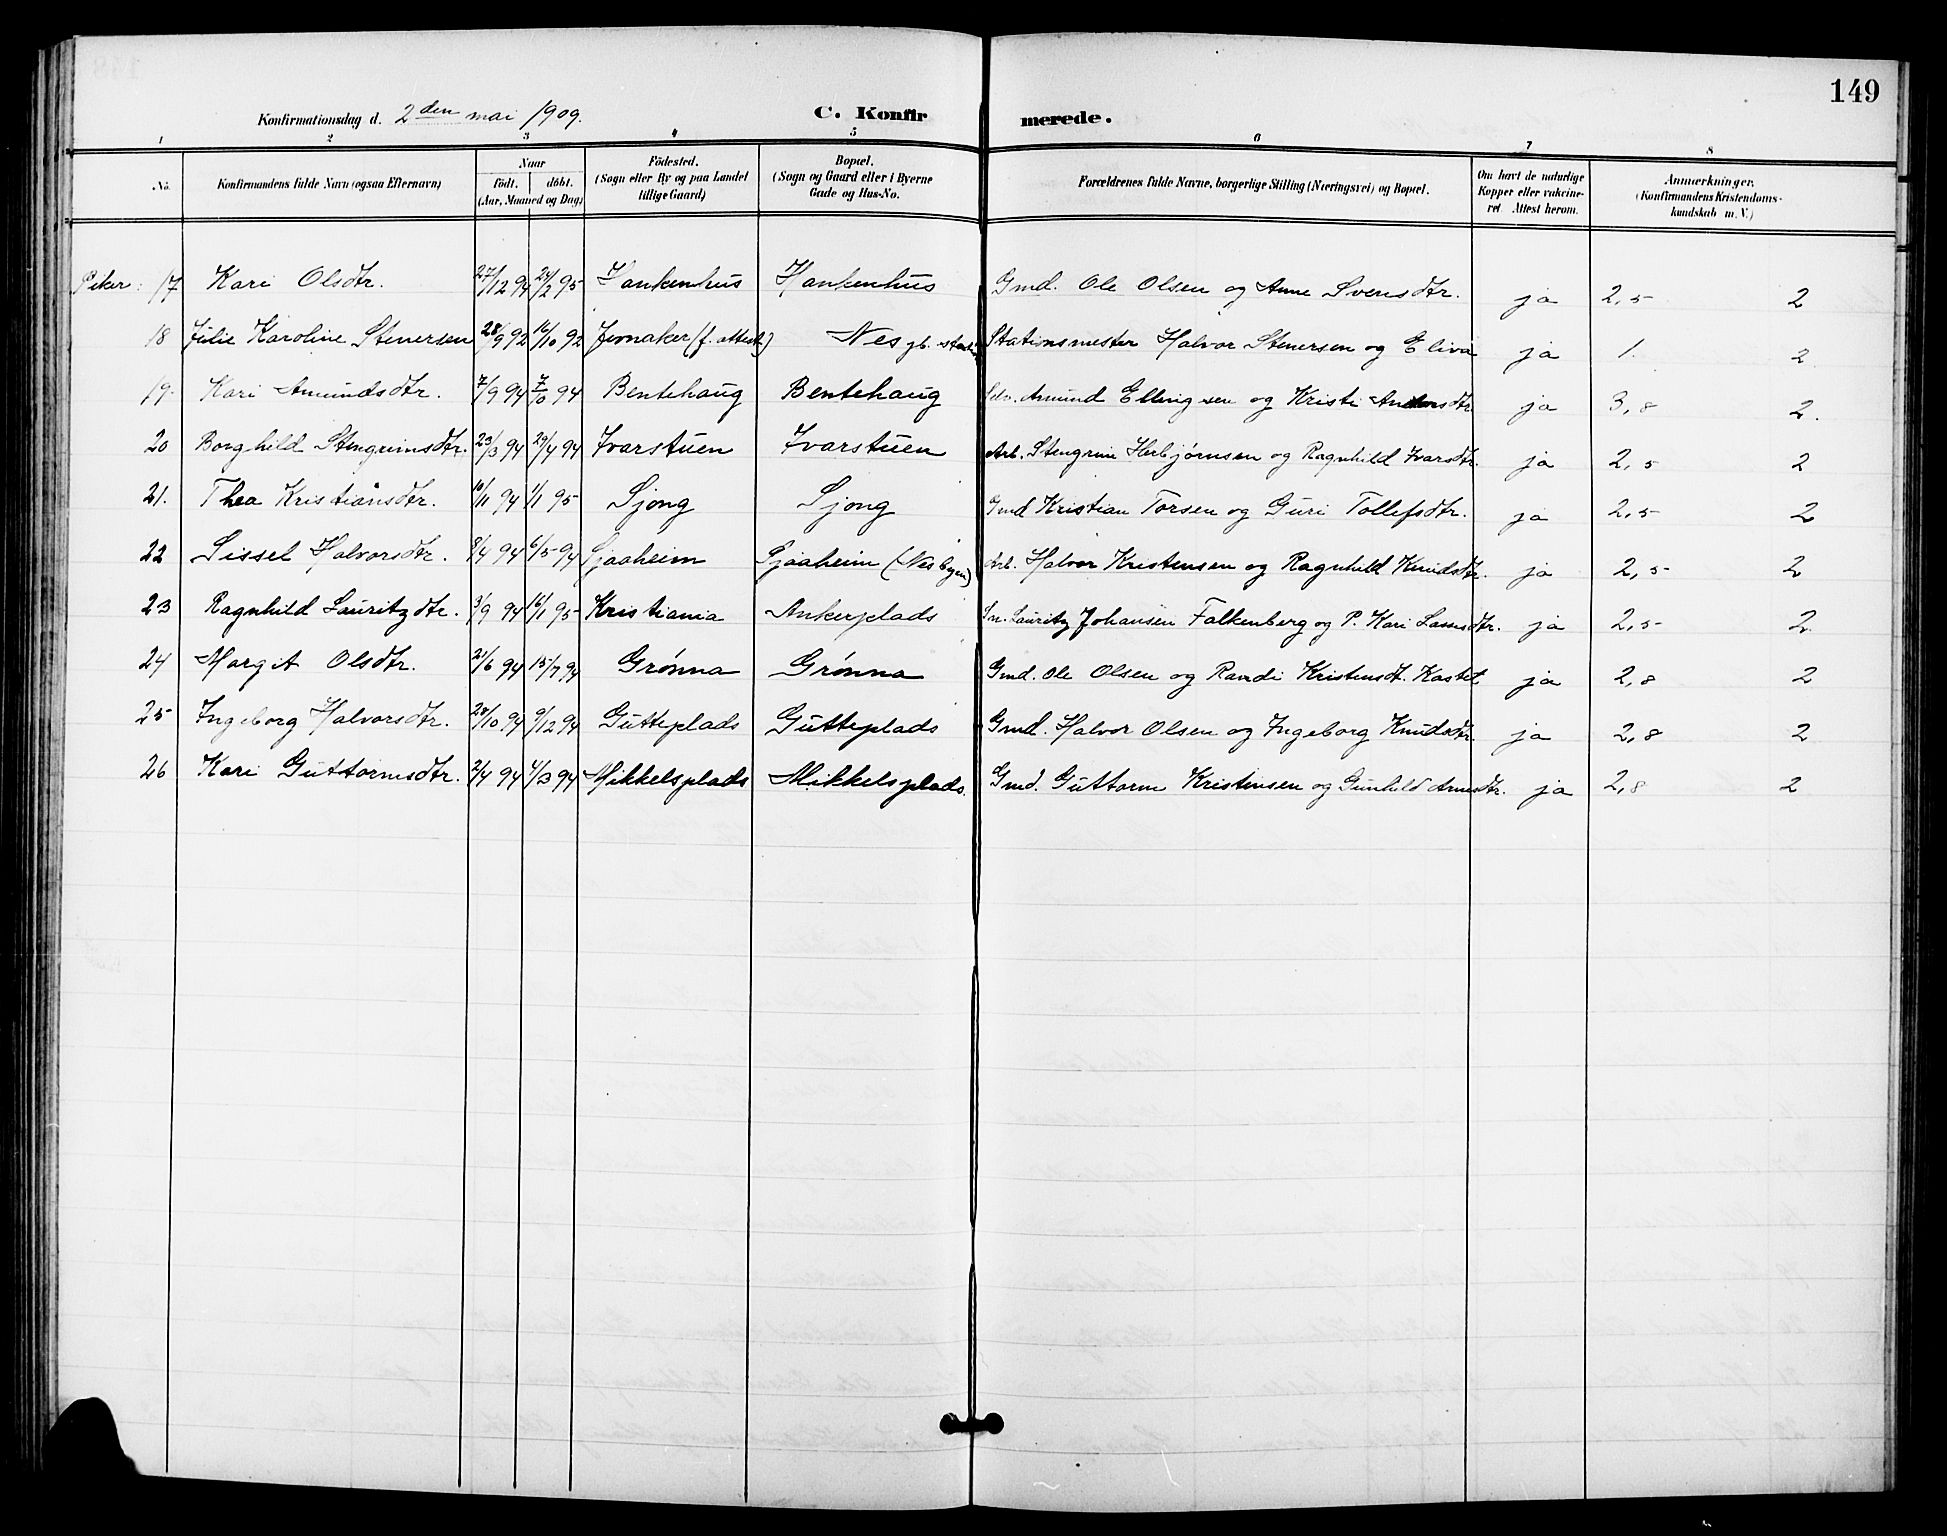 149
Konfirmationsdag d. 2den mai 1909. C. Konfirmerede.
1 2 3 4 5 6 7 8
No. Konfirmandens fulde Navn (ogsaa Efternavn) Naar födt. döbt. (Aar, Maaned og Dag) Födested. (Sogn eller By og paa Landet tillige Gaard) Bopæl. (Sogn og Gaard eller i Byerne Gade og Hus-No. Forældrenes fulde Navne, borgerlige Stilling (Næringsvei) og Bopæl. Om havt de naturlige Kopper eller vakcineret. Attest herom. Anmærkninger. (Konfirmandens Kristendomskundskab m. V.)
Piker: 17 Kari Olsdtr. 27/12 94 24/2 95 Hankenhus Hankenhus Gmd. Ole Olsen og Anne Svensdtr. ja 2,5 2
18 Julie Karoline Stenersen 28/9 92 16/10 92 Jevnaker (f. attest) Nes jb. Stationsmester Halvor Stenersen og Eliva ja 1. 2
19. Kari Amundsdtr. 7/9 94 7/10 94 Bentehaug Bentehaug Selv. Amund Ellingsen og Kristi Andersdtr ja 3,8 2.
20 Borghild Stengrimsdtr. 23/3 94 29/4 94 Ivarstuen Ivarstuen Arb. Stengrim Herbjørnsen og Ragnhild Ivarsdtr. ja 2,5 2
21. Thea Kristiansdtr. 10/11 94 1/1 95 Sjong Sjong Gmd Kristian Torsen og Guri Tollefsdtr. ja 2,5 2
22 Sissel Halvorsdtr. 8/4 94 6/5 94 Sjaaheim Sjaaheim (Nesbyen) Arb. Halvor Kristensen og Ragnhild Knudsdtr. ja 2,5 2
23 Ragnhild Lauritzdtr. 3/9 94 16/1 95 Kristiania Ankerplads Lauritz Johansen Falkenberg og P. Kari Larsdtr. ja 2,5 2.
24 Margit Olsdtr. 21/6 94 15/7 94 Grønna Grønna Gmd. Ole Olsen og Randi Kristensdt. Kastet ja 2,8 2
25 Ingeborg Halvorsdtr. 28/10 94 9/12 94 Gutteplads Gutteplads Gmd. Halvor Olsen og Ingeborg Knudsdtr. ja 2,8 2
26 Kari Guttormsdtr. 2/4 94 4/3 94 Mikkelsplads Mikkelsplads. Gmd. Guttorm Kristensen og Gunhild Arnesdtr. ja 2,8 2